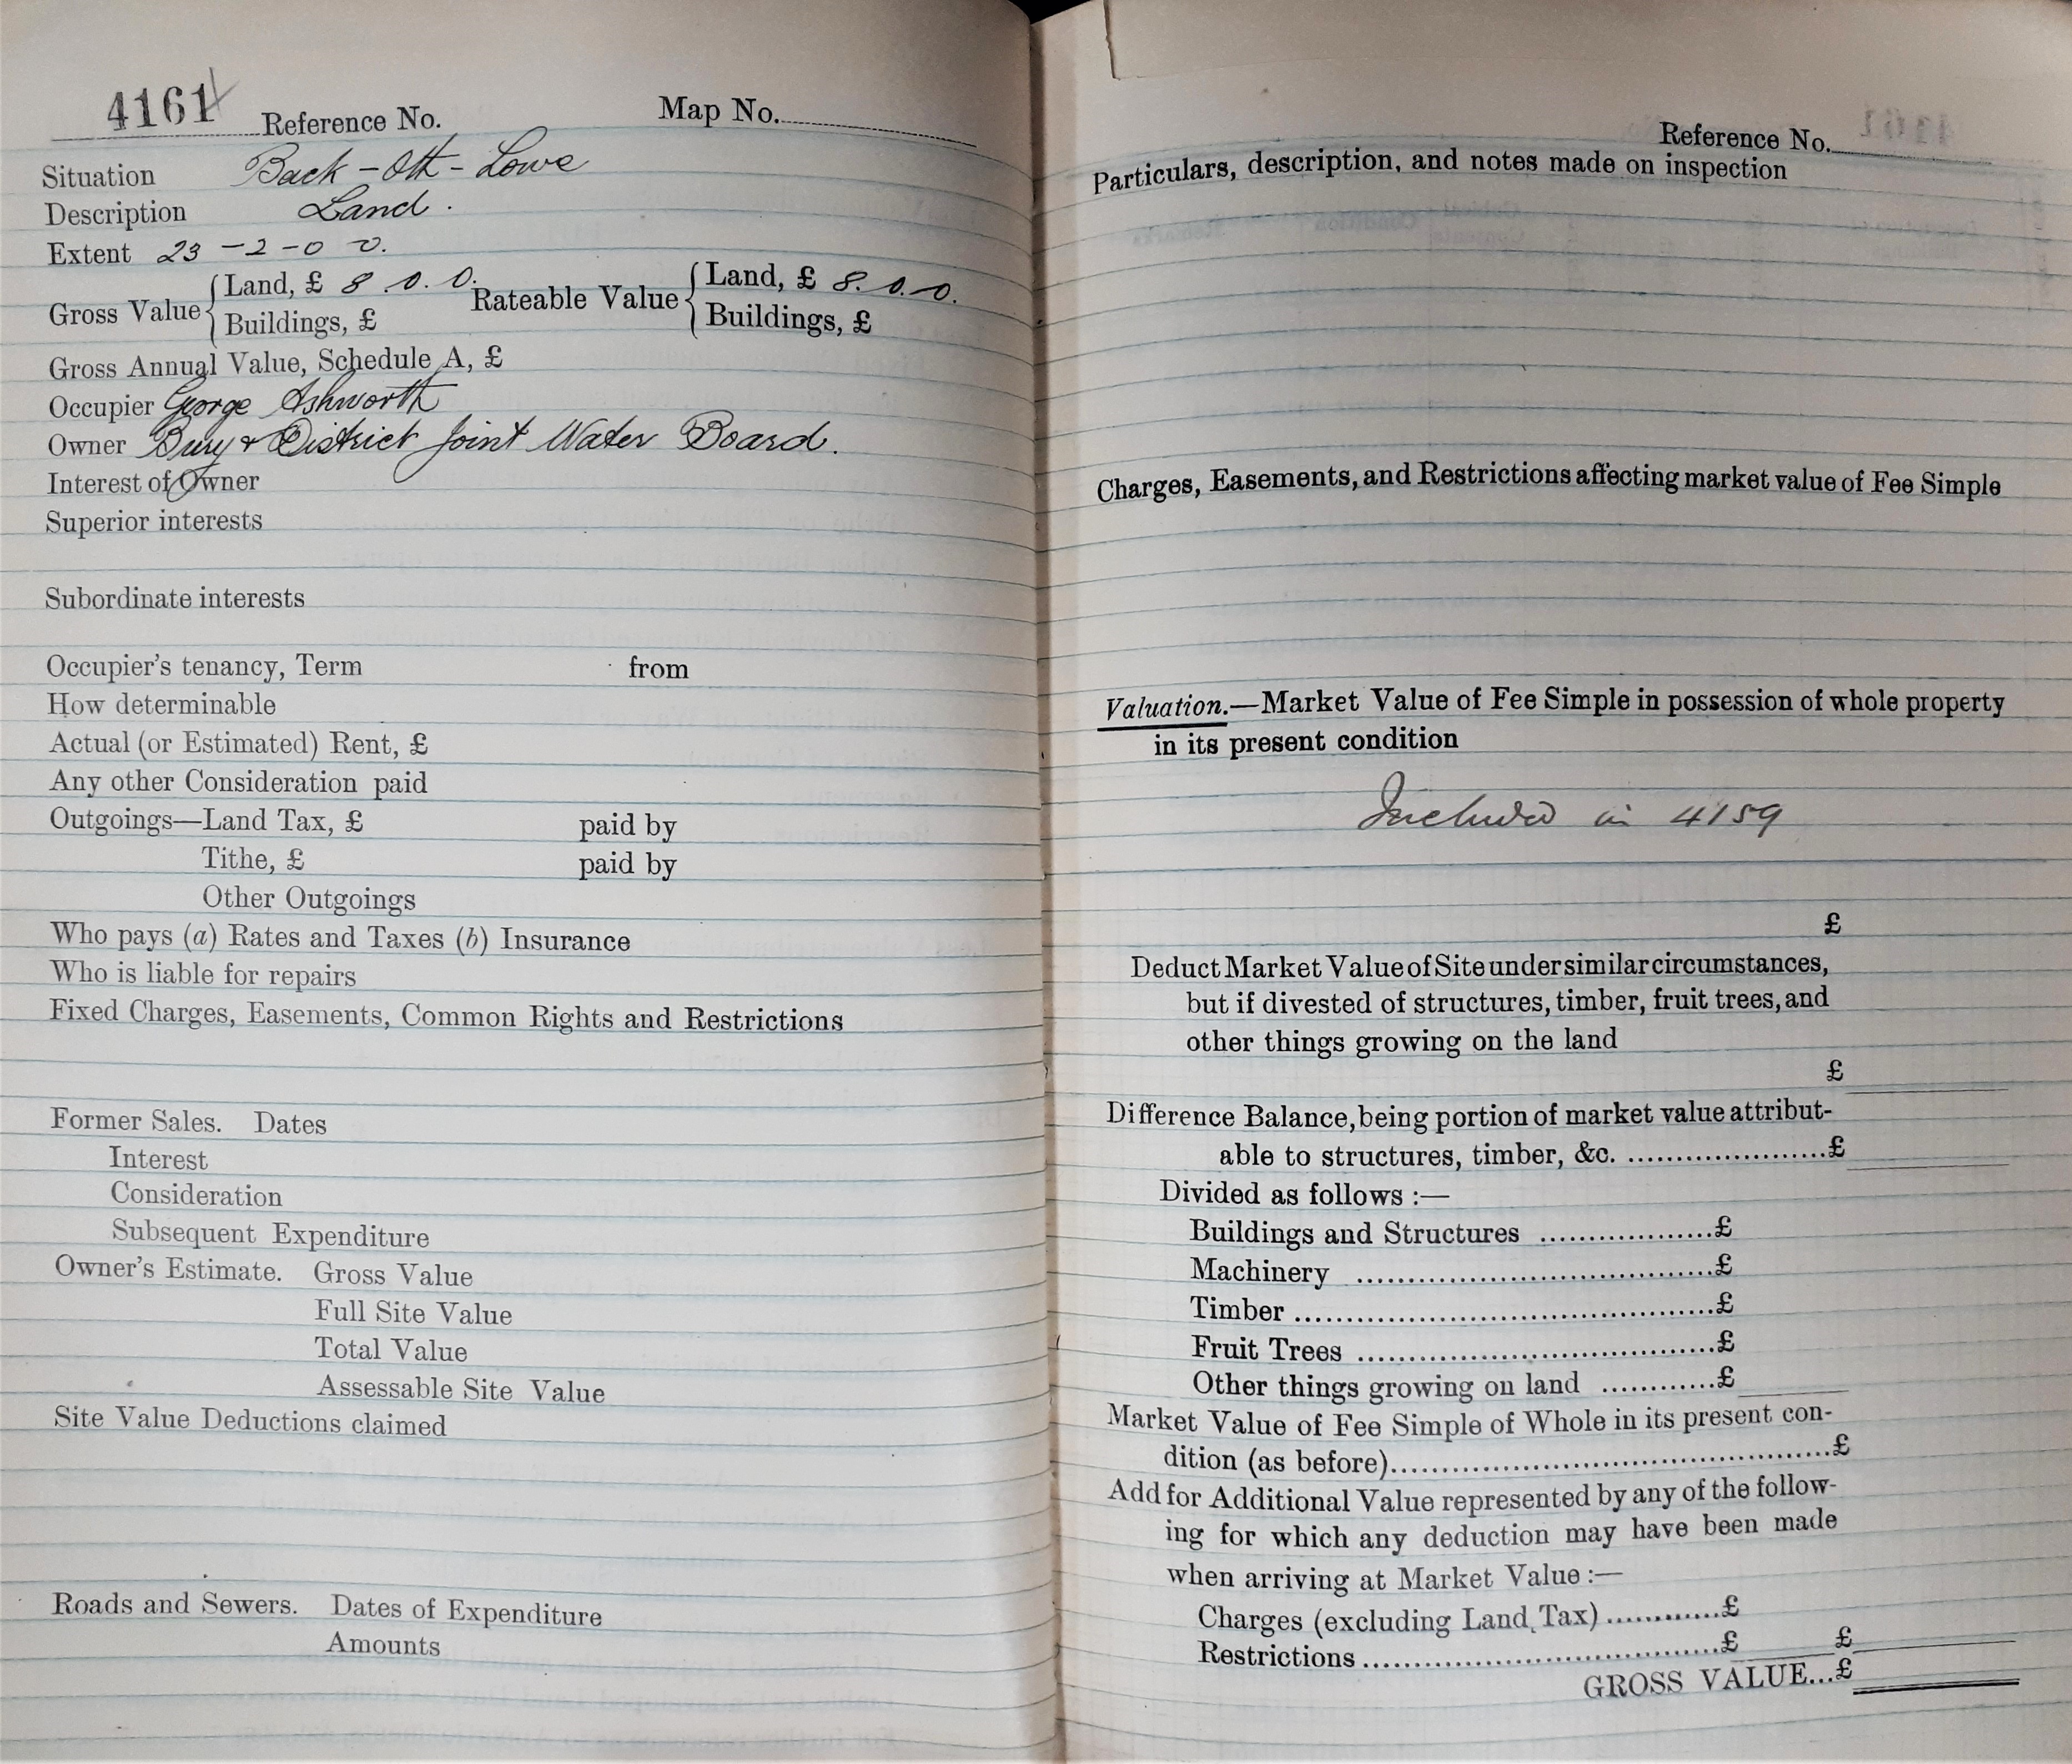 4161 Reference No. Map No.
Situation Back-Oth-Lowe
Description Land.
Extent 23-2-0 v.
Gross Value { Land, £ 8.0.0. Rateable Value { Land, £ 8.0.0.
Buildings, £ Buildings, £
Gross Annual Value, Schedule A, £
Occupier George Ashworth
Owner Bury & District Joint Water Board.
Interest of Owner
Superior interests
Subordinate interests
Occupier's tenancy, Term from
How determinable
Actual (or Estimated) Rent, £
Any other Consideration paid
Outgoings—Land Tax, £ paid by
Tithe, £ paid by
Other Outgoings
Who pays (a) Rates and Taxes (b) Insurance
Who is liable for repairs
Fixed Charges, Easements, Common Rights and Restrictions
Former Sales. Dates
Interest
Consideration
Subsequent Expenditure
Owner's Estimate. Gross Value
Full Site Value
Total Value
Assessable Site Value
Site Value Deductions claimed
Roads and Sewers. Dates of Expenditure
Amounts
Reference No.
Particulars, description, and notes made on inspection
Charges, Easements, and Restrictions affecting market value of Fee Simple
Valuation.—Market Value of Fee Simple in possession of whole property
in its present condition
Included in 4159
£
Deduct Market Value of Site under similar circumstances,
but if divested of structures, timber, fruit trees, and
other things growing on the land
£
Difference Balance, being portion of market value attribut-
able to structures, timber, &c. ......................£
Divided as follows :—
Buildings and Structures ..................£
Machinery .....................................£
Timber ...........................................£
Fruit Trees .....................................£
Other things growing on land ............£
Market Value of Fee Simple of Whole in its present con-
dition (as before)..............................................£
Add for Additional Value represented by any of the follow-
ing for which any deduction may have been made
when arriving at Market Value :—
Charges (excluding Land Tax) ............£
Restrictions .....................................£ £
GROSS VALUE...£